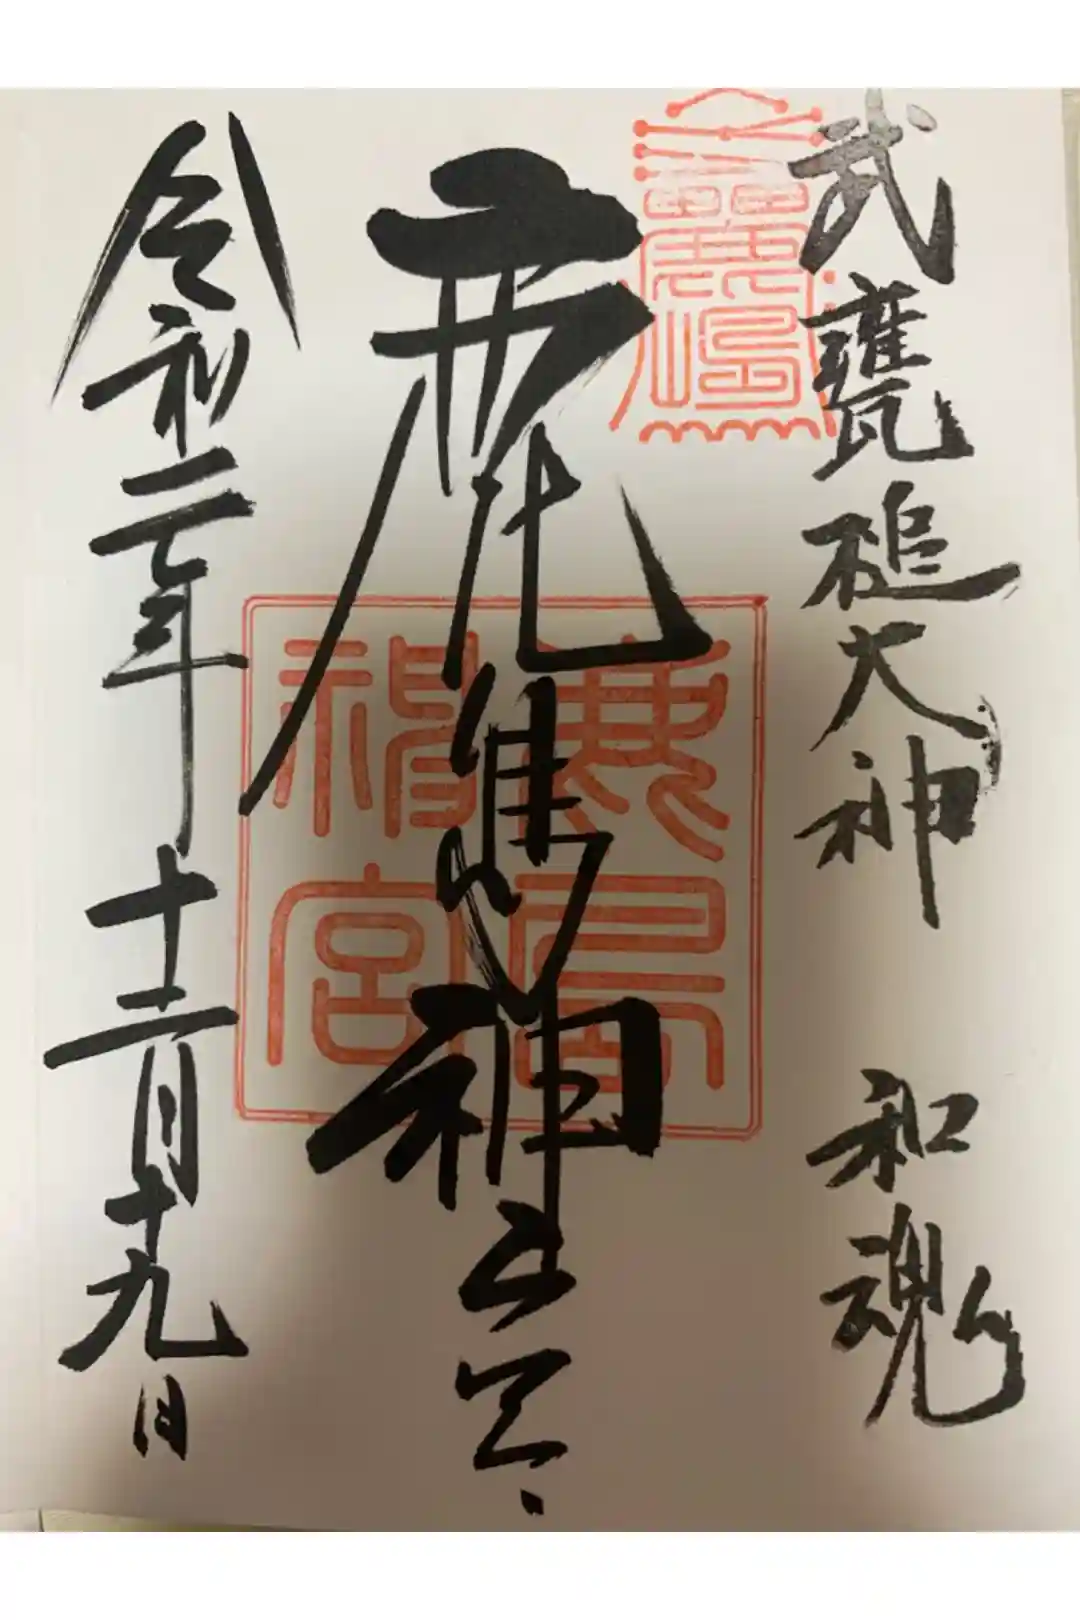 武甕槌大神 和魂
鹿島神宮
令和二年十二月十九日
鹿島神宮